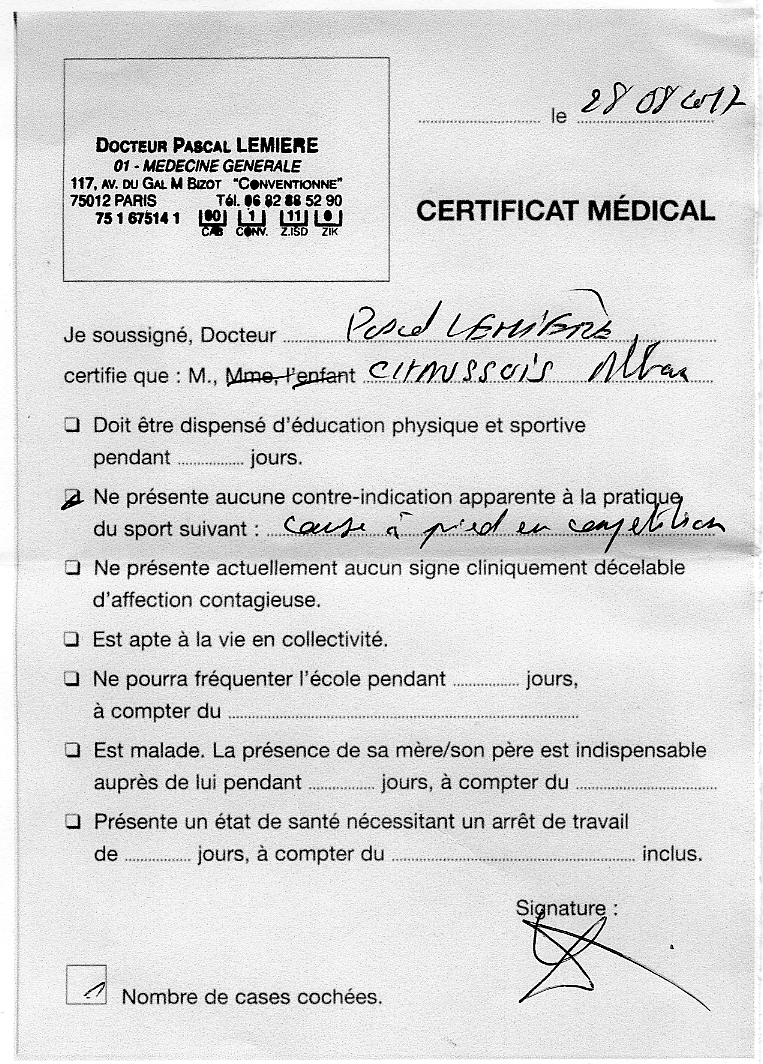 DOCTEUR PASCAL LEMIERE
01 - MEDECINE GENERALE
117, AV. DU GAL M BIZOT "CONVENTIONNE"
75012 PARIS Tél. 06 82 88 52 90
75 1 67514 1 00 1 11 0
CAB CONV. Z.ISD ZIK
le 28 08 2017
CERTIFICAT MÉDICAL
Je soussigné, Docteur Pascal LEMIÈRE
certifie que : M., Mme, l'enfant CHAUSSOIS Alban
❑ Doit être dispensé d'éducation physique et sportive
pendant ............... jours.
❑ Ne présente aucune contre-indication apparente à la pratique
du sport suivant : course à pied en compétition
❑ Ne présente actuellement aucun signe cliniquement décelable
d'affection contagieuse.
❑ Est apte à la vie en collectivité.
❑ Ne pourra fréquenter l'école pendant ............... jours,
à compter du ...............
❑ Est malade. La présence de sa mère/son père est indispensable
auprès de lui pendant ............... jours, à compter du ...............
❑ Présente un état de santé nécessitant un arrêt de travail
de ............... jours, à compter du ............... inclus.
Signature :
1 Nombre de cases cochées.